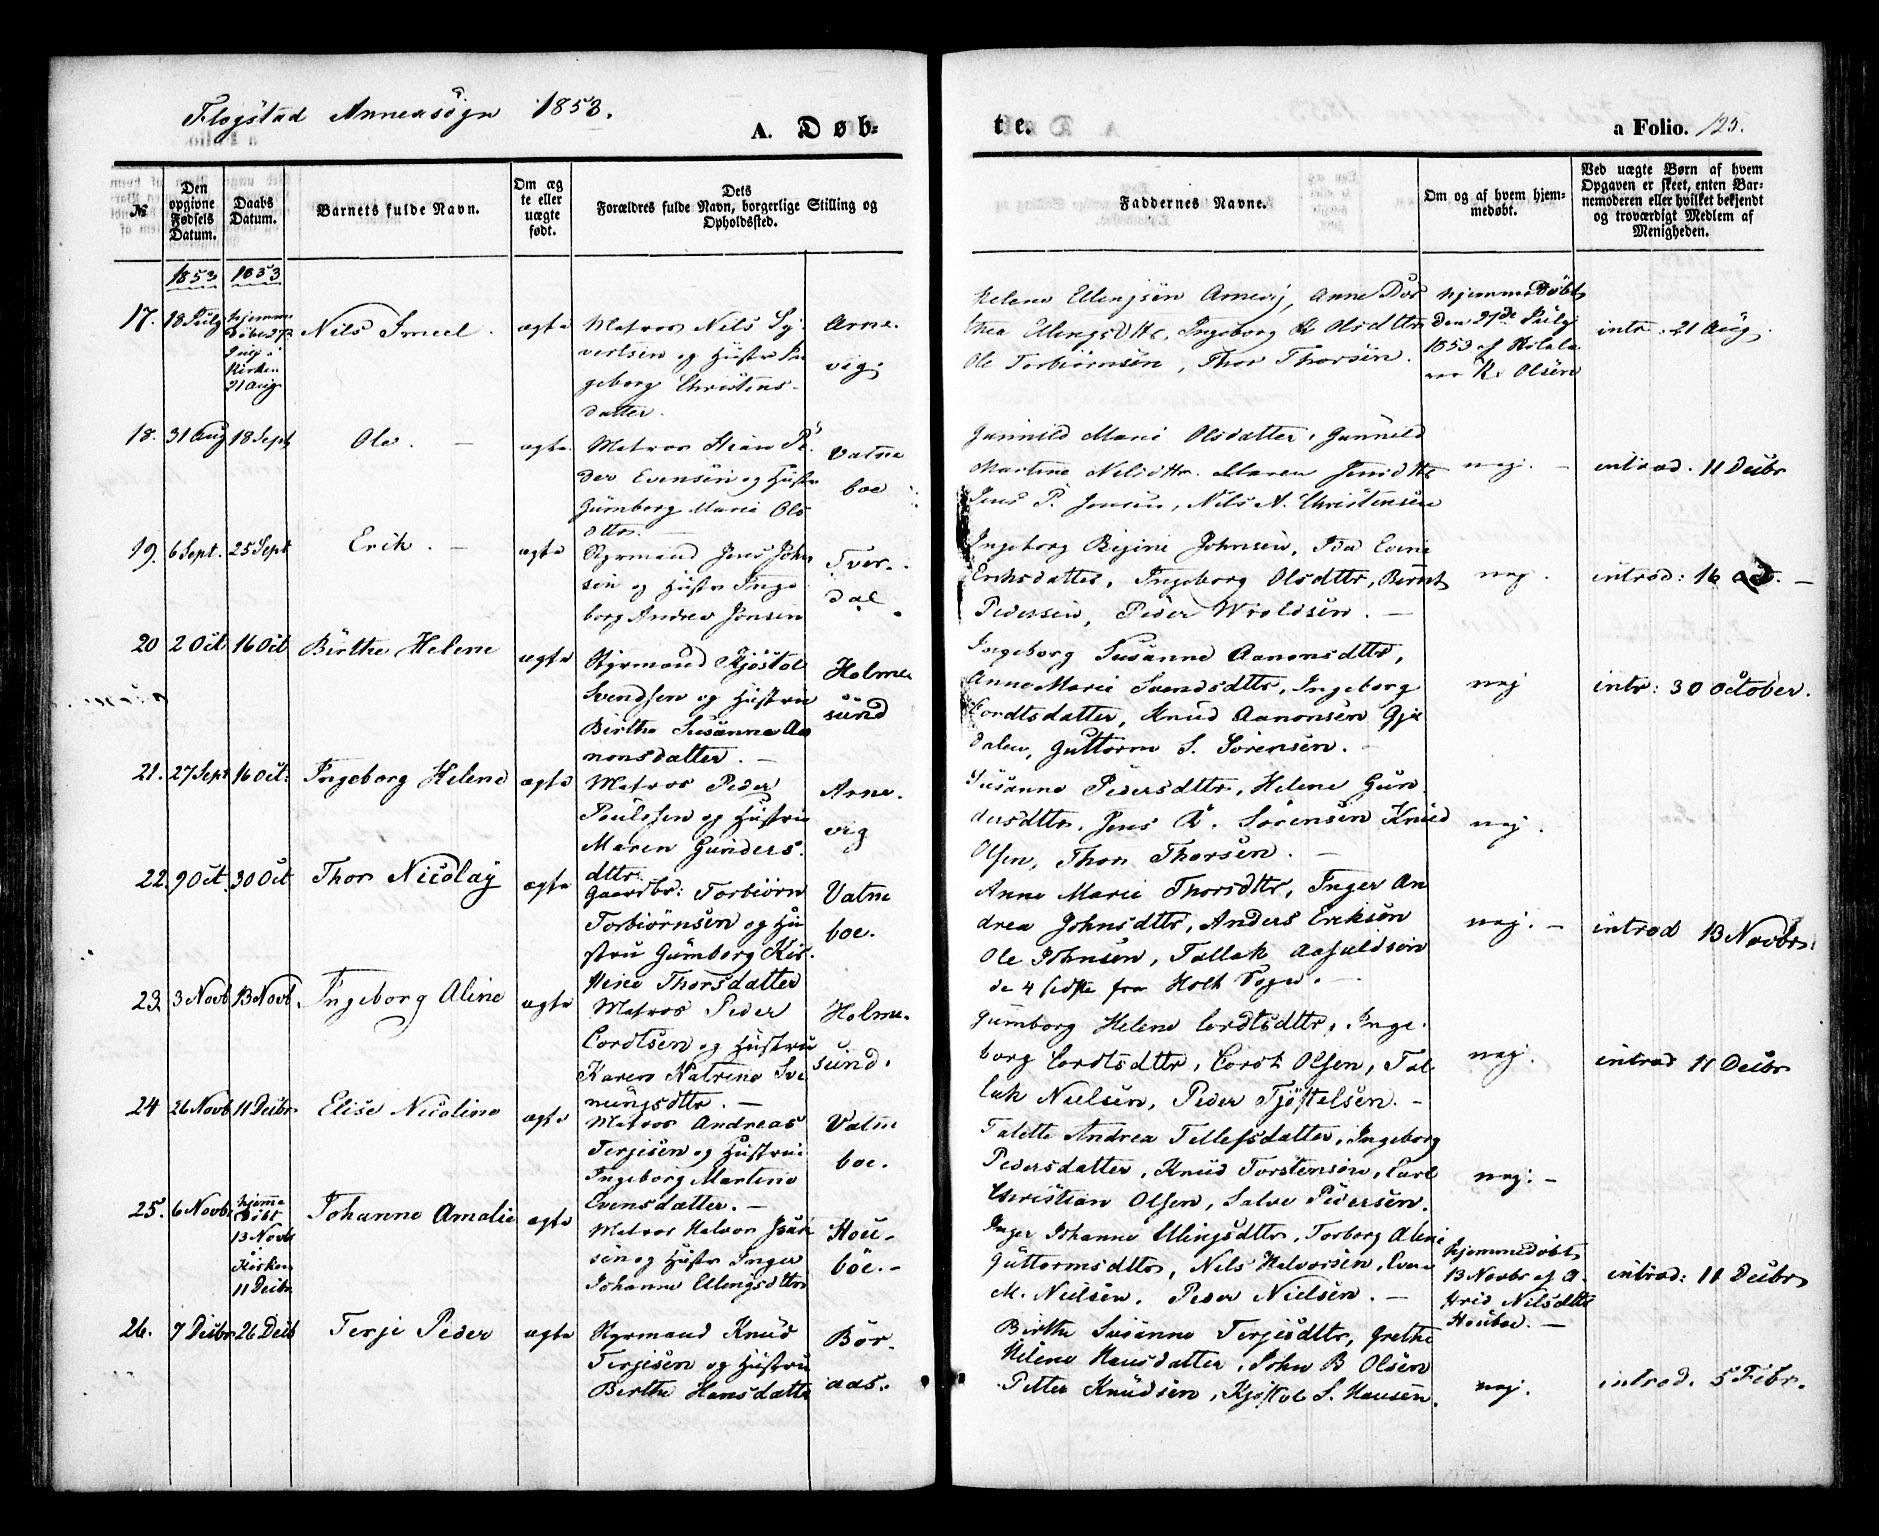 Flosstad Annexsogn 1853.
A. Døb-
te.
a Folio. 125.
№
Den opgivne Fødsels Datum.
Daabs Datum.
Barnets fulde Navn.
Om ægte eller uægte født.
Dets Forældres fulde Navn, borgerlige Stilling og Opholdssted.
Faddernes Navne.
Om og af hvem hjemmedøbt.
Ved uægte Børn af hvem Opgaven er skeet, enten Barnemoderen eller hvilket bekjendt og troværdigt Medlem af Menigheden.
1853 1853
17. 18 July
hjemme
døbt 27
July i
Kirken
21 Aug
Nils
ægte
Matros Nils Sy-
vertsen og Hustr In
geborg Christens-
datter.
Arne-
vig
Helene Ellingsen Arnevig, Anne Dor
thea Ellingsdtr, Ingeborg K Olsdttr
Ole Torbiørnsen, Thor Thorsen.
hjemmedøbt
den 27de July
1853 af
K. Olsen
intr. 21 Aug.
18. 31 Aug 18 Sept
Ole. -
ægte.
Matros Pe
der Evensen og Hustr
Gumborg Marie Ols
dttr. -
Vatne
boe
Gunnild Marie Olsdatter, Gunnild
Martine Nilsdttr. Maren Jensdttr
Jens P. Jensen, Nils N. Christensen
nej. -
introd. 11 Decbr
19. 6 Sept. 25 Sept
Erik. -
ægte
Styrmand Jens John
sen og Hustr Inge
borg Andrea Jensen
Tver-
dal.
Ingeborg Johnsen, Ida
Eriksdatter, Ingeborg Olsdttr, Bernt
Pedersen, Peder Wroldsen. -
nej.
introd: 16 Oct. -
20 2 Oct 16 Oct
Birthe Helene
ægte
Styrmand Kjøstol
Svendsen og Hustru
Birthe Susanne Aa
nonsdatter. -
Holme
sund
Ingeborg Susanne Aanonsdttr,
Anne Marie Svendsdttr, Ingeborg
Cordtsdatter, Knud Aanonsen
dalen, Guttorm S. Sørensen. -
nej
intr: 30 October.
21. 27 Sept 16 Oct:
Ingeborg Helene
ægte
Matros Peder
Poulssen og Hustru
Maren Gunders.
dttr.
Arne-
vig
Susanne Pedersdttr, Helene Gun
dersdttr, Jens A. Sørensen Knud
Olsen, Thor Thorsen. -
nej.
22. 9 Oct. 30 Oct
Thor Nicolay
ægte
Gaardbr: Torbiørn
Torbiørnsen og Hu
stru Gumborg Kir-
stine Thorsdatter
Vatne
boe.
Anne Marie Thorsdttr, Inger An
drea Johnsdttr, Anders Eriksen
Ole Johnsen, Tallak Aasuldsen
de 4 sidste fra Holt Sogn. -
nej. -
introd 13 Novbr.
23. 3 Novb 13 Novb.
Ingeborg Aline
ægte
Matros Peder
Cordtsen og Hustru
Karen Katrine Sve
nungsdttr. -
Holme-
sund.
Gumborg Helene Cordtsdttr, Inge-
borg Cordtsdttr, Cordt Olsen, Tal
lak Nielsen, Peder Tjøstelsen. -
nej.
introd 11 Decbr
24 26 Novb 11 Decbr
Elise Nicoline
ægte
Matros Andreas
Terjesen og Hustru
Ingeborg Martine
Evensdatter. -
Vatne
boe.
Talette Andrea Tellefsdatter, Ingeborg
Pedersdatter, Knud Torstensen, Carl
Christian Olsen, Salve Pedersen.
nej: -
25. 6 Novbr
hjemme
døbt
13 Novb
i
Kirken
11 Decbr
Johanne Amalie
ægte
Matros Halvor
sen og Hustr Inger
Johanne Ellingsdttr
Hou-
böe. -
Inger Johanne Ellingsdttr, Torborg Aline
Guttormsdttr, Nils Halvorsen, Even
M. Nielsen, Peder Nielsen. -
hjemmedøbt
13 Novbr af A-
strid Nilsdttr
Houboe. -
introd: 11 Decbr
26. 7 Decbr 26 Decb
Terje Peder
ægte
Styrmand Knud
Terjesen og Hustru
Berthe Hansdatte
Bör-
aas.
Birthe Susanne Terjesdttr, Grethe
Helene Hansdatter, John B Olsen
Petter Knudsen, Kjøstol S. Hansen.
nej.
introd. 5 Febr.